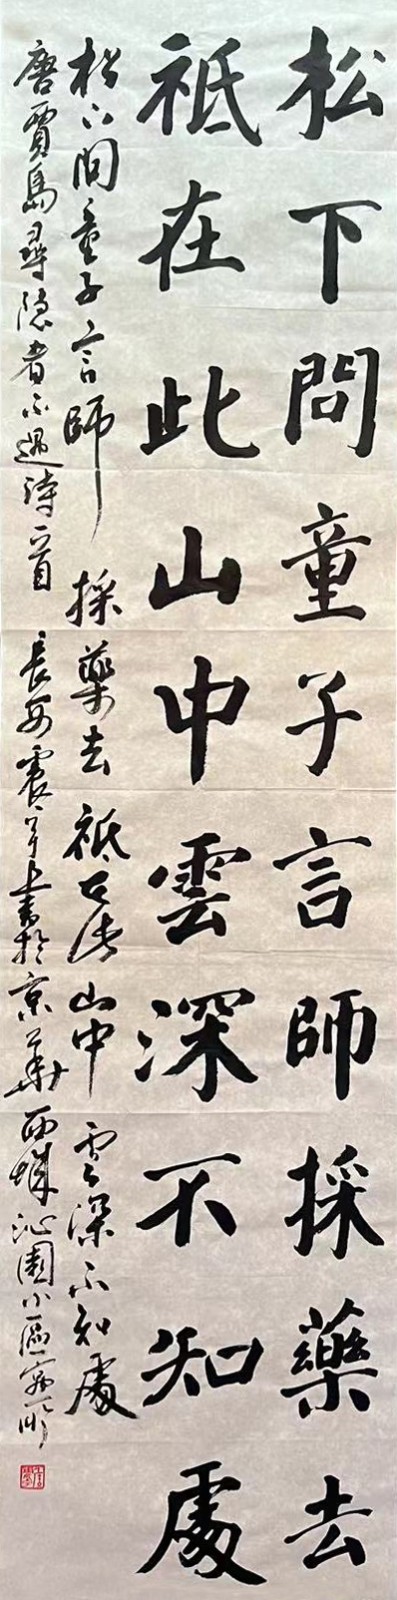 松下問童子言師採藥去
祗在此山中雲深不知處
松下問童子言師採藥去祗在此山中雲深不知處
唐賈島尋隱者不遇詩一首長安震宇書於京華西城沁園小區寓所